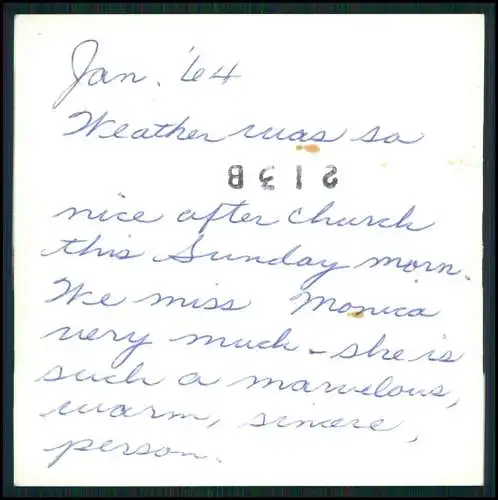 Jan. '64
Weather was so
213B
nice after church
this Sunday morn.
We miss Monica
very much - she is
such a marvelous,
warm, sincere,
person.